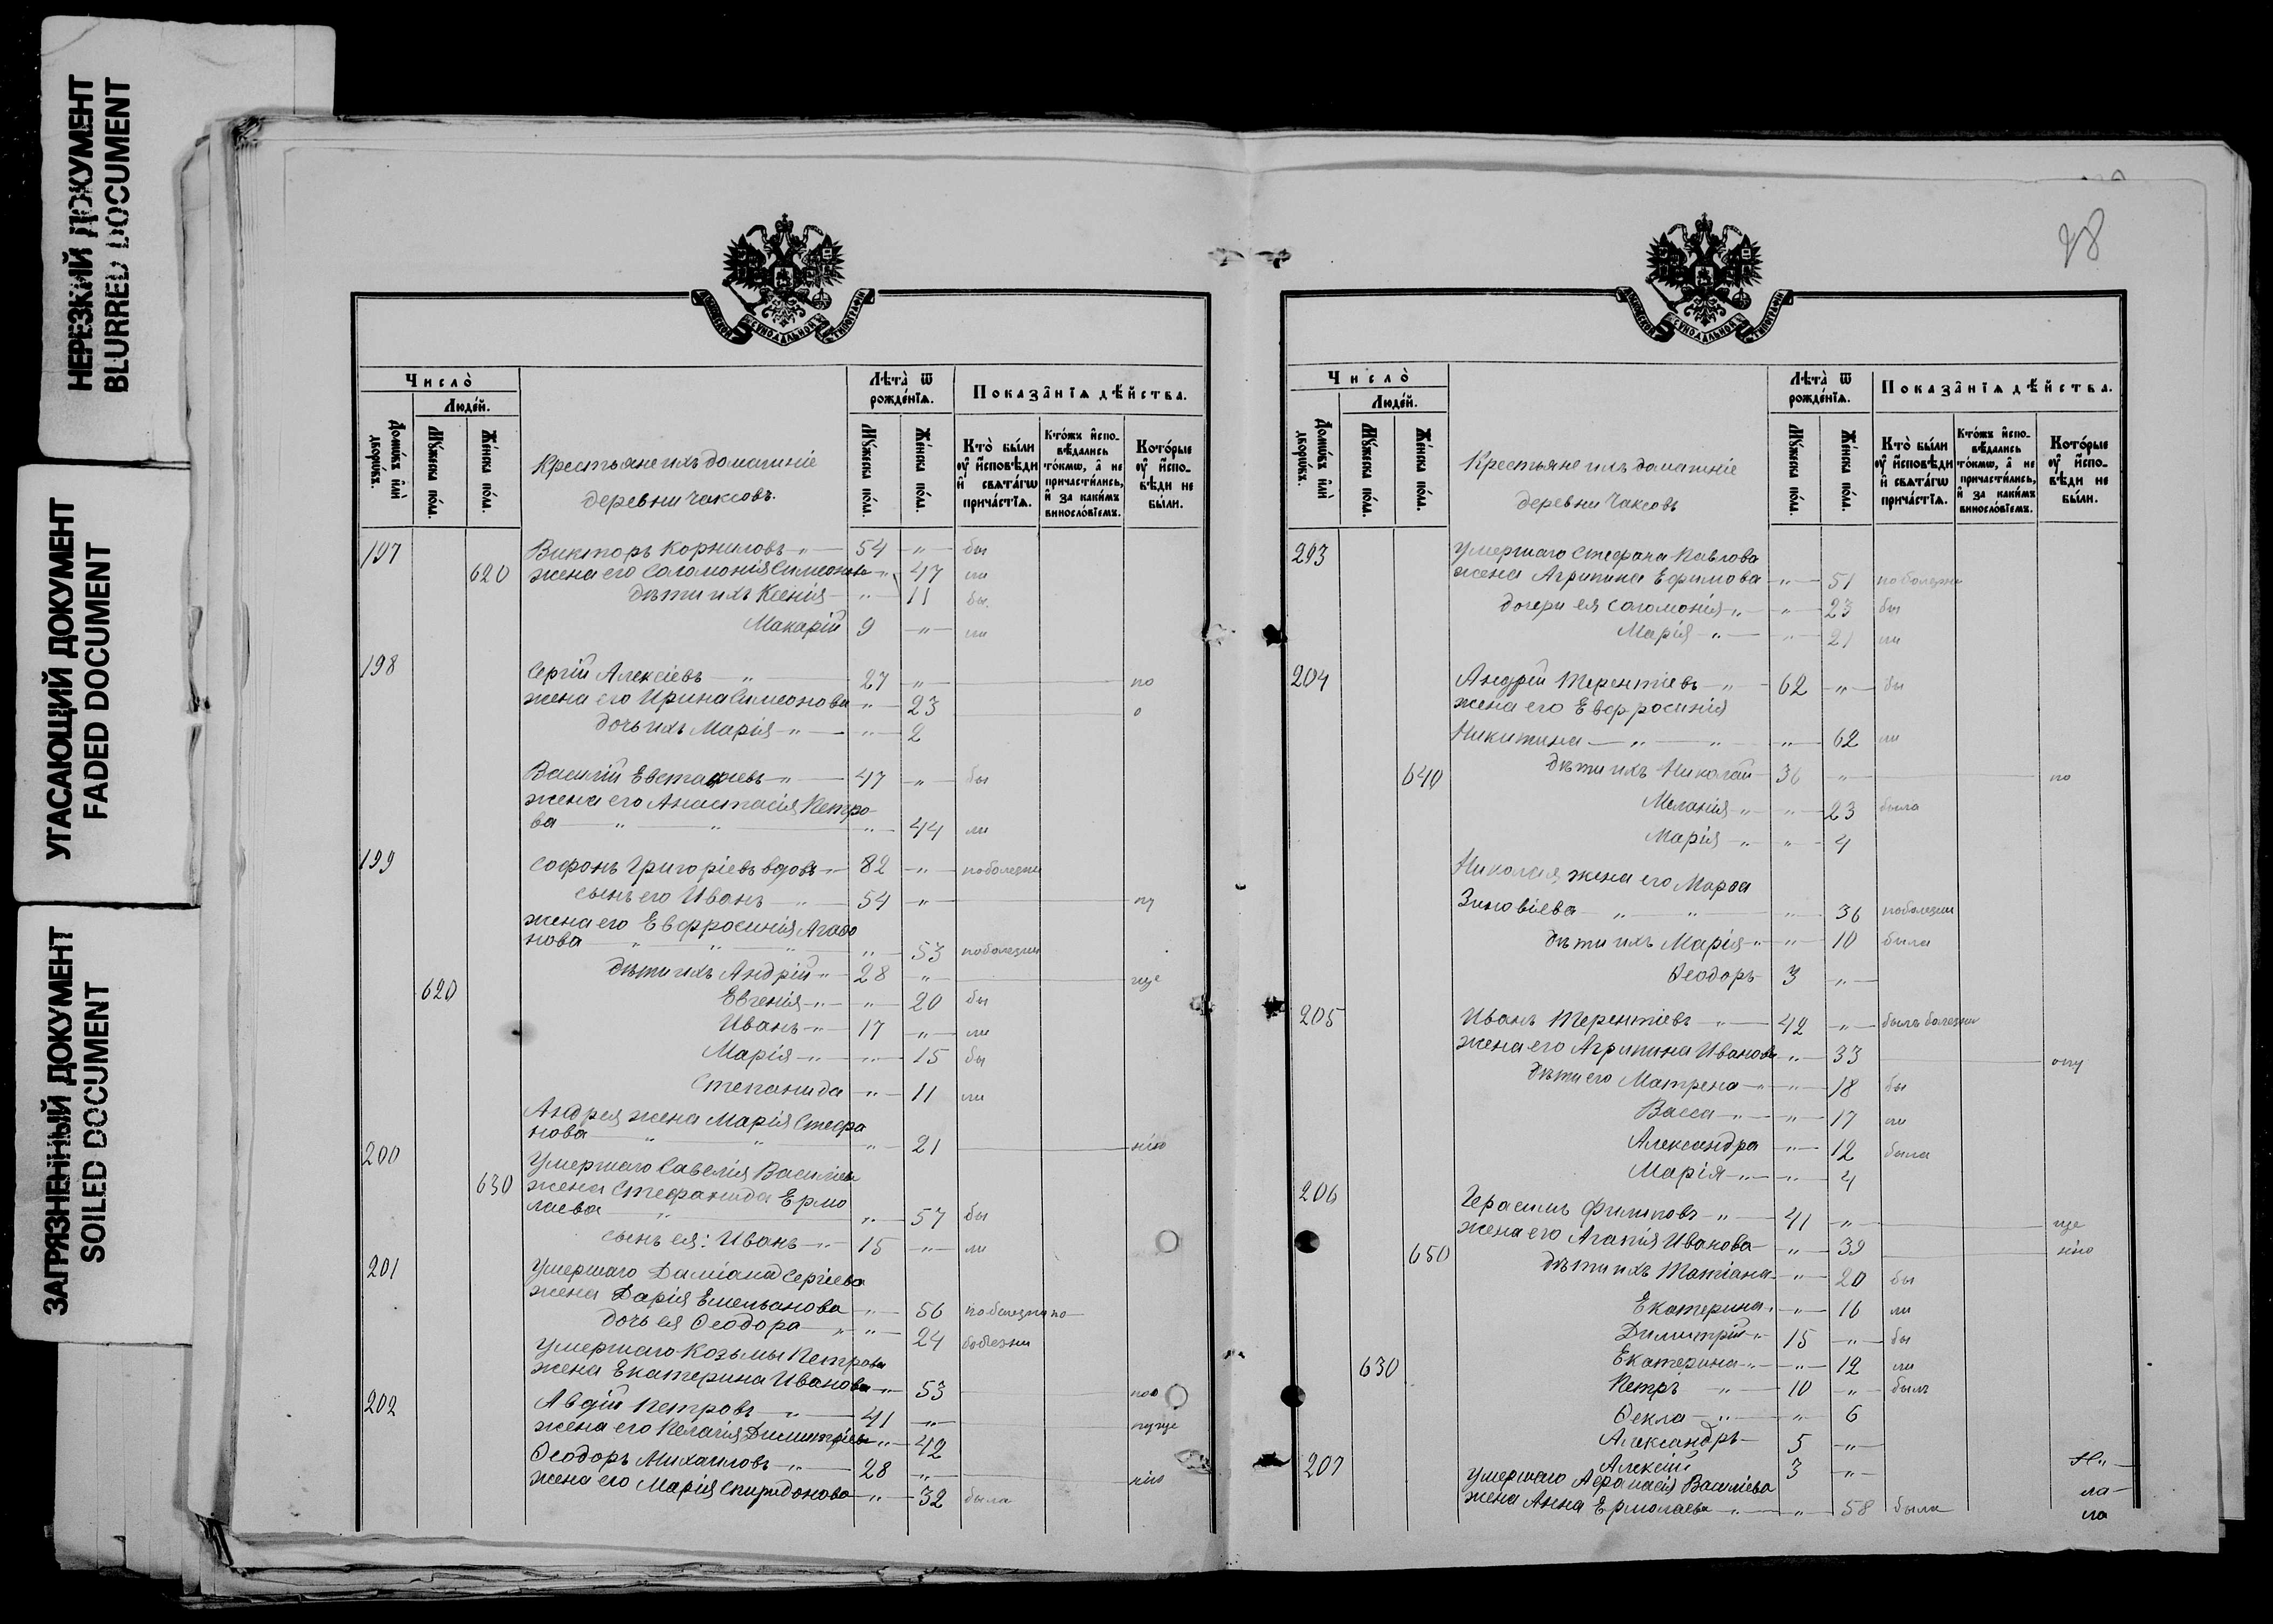 НЕРЕЗКИЙ ДОКУМЕНТ
BLURRED DOCUMENT
УГАСАЮЩИЙ ДОКУМЕНТ
FADED DOCUMENT
ЗАГРЯЗНЕННЫЙ ДОКУМЕНТ
SOILED DOCUMENT
МОСКОВСКОЙ СѴНОДАЛЬНОЙ ТИПОГРАФІИ
Число̀
Люде́й.
Домѡ́въ и҆лѝ дворѡ́въ.
Мꙋ́жеска по́ла.
Же́нска по́ла.
Крестьяне ихъ домашніе
деревни Чаксовъ.
Лѣта̀ ѿ рожде́нїѧ.
Мꙋ́жеска по́ла.
Же́нска по́ла.
Показа̑нїѧ дѣ́йства.
Кто̀ бы́ли ᲂу҆ и҆сповѣди и҆ свѧта́гѡ прича́стїѧ.
Кто́жъ и҆спо-вѣдались то́кмѡ, а҆ не причасти́лись, и҆ за каки́мъ винослові́емъ.
Кото́рые ᲂу҆ и҆спо-вѣди не бы́ли.
197 Викторъ Корниловъ „ — 54 — „ — бы
620 жена его Соломонія Симеонова „ — 47 — ли
дѣти ихъ Ксенія — „ — 11 — бы
Макарій 9 — „ — ли
198 Сергій Алексіевъ — „ — 27 — „ — по
жена его Ирина Симеонова — „ — 23 — о
дочь ихъ Марія — „ — „ — 2
Василій Евстафіевъ — „ — 47 — „ — бы
жена его Анастасія Петро
ва — „ — „ — „ — 44 — ли
199 Софонъ Григоріевъ вдовъ — 82 — „ — по болезни
сынъ его Иванъ — „ — 54 — „ —
жена его Евфросинія Агафо
нова — „ — „ — „ — 53 — по болезни
дѣти ихъ Андрій — 28 — „ — ще
620 Евгенія — „ — „ — 20 — бы
Иванъ — „ — 17 — „ — ли
Марія — „ — „ — 15 — бы
Степанида — „ — 11 — ли
Андрея жена Марія Стефа
нова — „ — „ — „ — 21 — нію
200 Умершаго Савелія Василіева
630 жена Стефанида Ермо
лаева — „ — „ — 57 — бы
сынъ ея: Иванъ — 15 — „ — ли
201 Умершаго Даміана Сергіева
жена Дарія Емельянова — „ — 56 — по болезни по
дочь ея Ѳеодора — „ — „ — 24 — болезни
Умершаго Козьмы Петрова
жена Екатерина Иванова — „ — 53 —
202 Авдій Петровъ — „ — 41 — „ —
жена его Пелагія Димитріева „ — 42
Ѳеодоръ Михаиловъ — „ — 28 — „ — нію
жена его Марія Спиридонова — „ — 32 — была
28
МОСКОВСКОЙ СѴНОДАЛЬНОЙ ТИПОГРАФІИ
Число̀
Люде́й.
Домѡ́въ и҆лѝ дворѡ́въ.
Мꙋ́жеска по́ла.
Же́нска по́ла.
Крестьяне ихъ домашніе
деревни Чаксовъ
Лѣта̀ ѿ рожде́нїѧ.
Мꙋ́жеска по́ла.
Же́нска по́ла.
Показа̑нїѧ дѣ́йства.
Кто̀ бы́ли ᲂу҆ и҆сповѣди и҆ свѧта́гѡ прича́стїѧ.
Кто́жъ и҆спо-вѣдались то́кмѡ, а҆ не причасти́лись, и҆ за каки́мъ винослові́емъ.
Кото́рые ᲂу҆ и҆спо-вѣди не бы́ли.
203 Умершаго Стефана Павлова
жена Агрипина Ефимова — „ — 51 — по болезни
дочери ея Соломонія „ — „ — 23 — бы
Марія — „ — „ — 21 — ли
204 Андрій Терентіевъ — „ — 62 — „ — бы
жена его Евфросинія
Никитина — „ — „ — „ — 62 — ли
640 дѣти ихъ Николай — 36 — „ — по
Меланія — „ — „ — 23 — была
Марія — „ — „ — 4
Николая, жена его Марѳа
Зиновіева — „ — „ — „ — 36 — по болезни
дѣти ихъ Марія — „ — 10 — была
Ѳеодоръ — 3 — „ —
205 Иванъ Терентіевъ — „ — 42 — „ — былъ болезни
жена его Агрипина Иванова „ — 33 — опу
дѣти его Матрена — „ — 18 — бы
Васса — „ — „ — 17 — ли
Александра — „ — 12 — была
Марія — „ — „ — 4
206 Герасимъ Филиповъ — „ — 41 — „ — ще
жена его Агапія Иванова — „ — 39 — нію
650 дѣти ихъ Татіана — „ — 20 — бы
Екатерина — „ — 16 — ли
Димитрій — 15 — „ — бы
630 Екатерина — „ — 12 — ли
Петръ — „ — 10 — „ — былъ
Ѳекла — „ — „ — 6
Александръ — 5 — „ —
Алексій 3 — „ —
207 Умершаго Аѳанасія Василіева
ла
жена Анна Ермолаева — „ — „ — 58 — была
ла